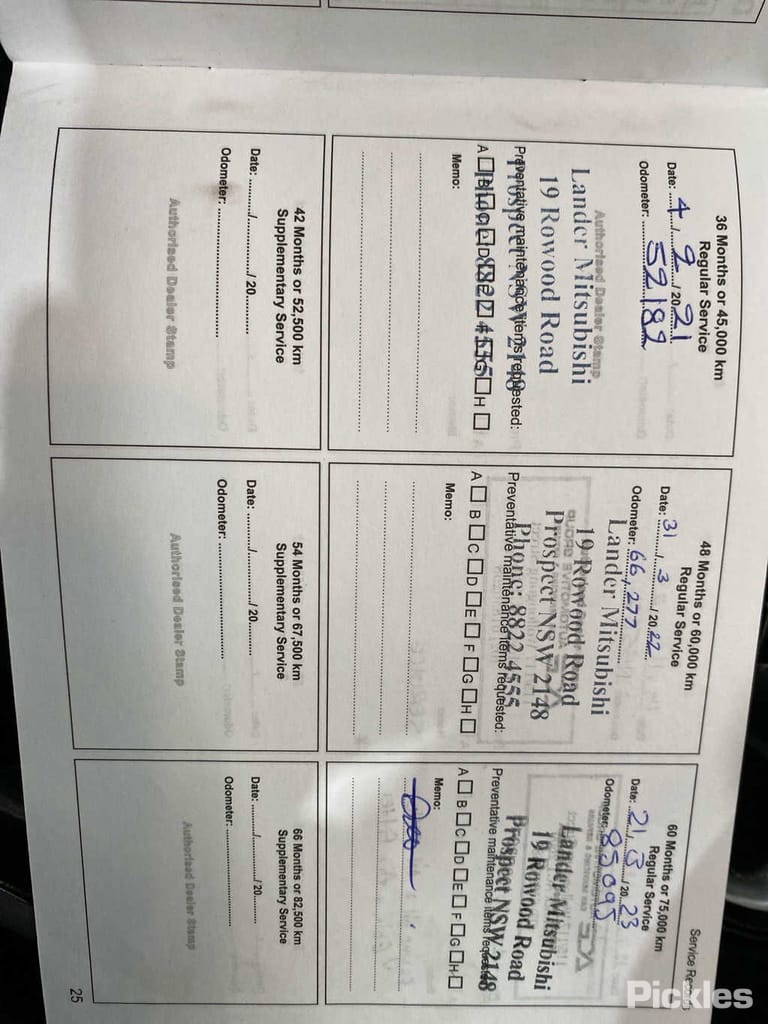 Service Records
36 Months or 45,000 km
Regular Service
Date: 4 / 9 / 20 21
Odometer: 52189
Authorised Dealer Stamp
Lander Mitsubishi
19 Rowood Road
Prospect NSW 2148
Phone: 8822 4555
Preventative maintenance items requested:
A B C D E F G H
Memo:
48 Months or 60,000 km
Regular Service
Date: 31 / 3 / 20 22
Odometer: 66,277
Lander Mitsubishi
19 Rowood Road
Prospect NSW 2148
Phone: 8822 4555
Preventative maintenance items requested:
A B C D E F G H
Memo:
60 Months or 75,000 km
Regular Service
Date: 21 / 3 / 20 23
Odometer: 85095
Lander Mitsubishi
19 Rowood Road
Prospect NSW 2148
Preventative maintenance items requested:
A B C D E F G H
Memo:
42 Months or 52,500 km
Supplementary Service
Date: / / 20
Odometer:
Authorised Dealer Stamp
54 Months or 67,500 km
Supplementary Service
Date: / / 20
Odometer:
Authorised Dealer Stamp
66 Months or 82,500 km
Supplementary Service
Date: / / 20
Odometer:
Authorised Dealer Stamp
25
Pickles